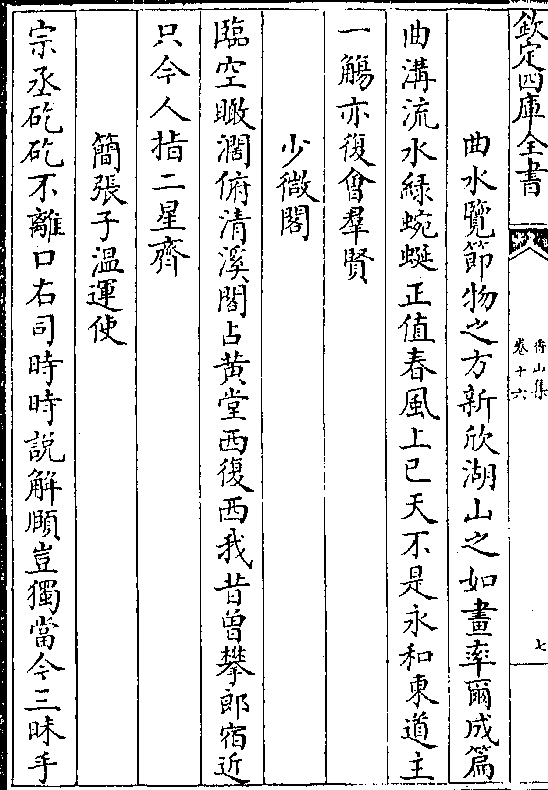 欽定四庫全書
倚山集
卷十六
七
曲水覽節物之方新欣湖山之如畫率爾成篇
曲溝流水綠蜿蜒正值春風上巳天不是永和東道主
一觴亦復會羣賢
少微閣
臨空瞰濶俯清溪閣占黄堂西復西我昔曾攀郎宿近
只今人指二星齊
簡張子温運使
宗丞矻矻不離口右司時時說解頤豈獨當今三昧手